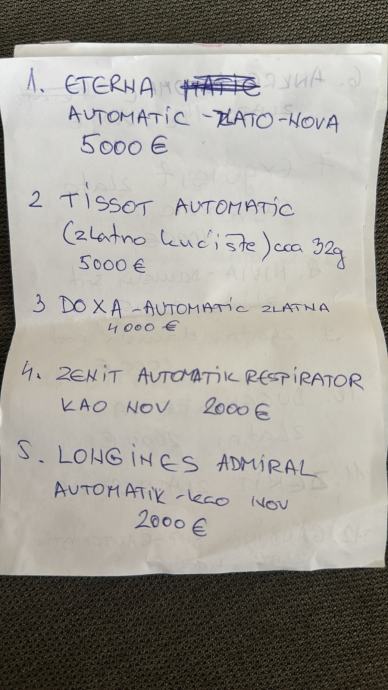 1. ETERNA
AUTOMATIC - ZLATO - NOVA
5000 €
2 TISSOT AUTOMATIC
(zlatno kućište) cca 32g
5000 €
3 DOXA - AUTOMATIC ZLATNA
4000 €
4. ZENIT AUTOMATIK RESPIRATOR
KAO NOV 2000 €
5. LONGINES ADMIRAL
AUTOMATIK - kao NOV
2000 €